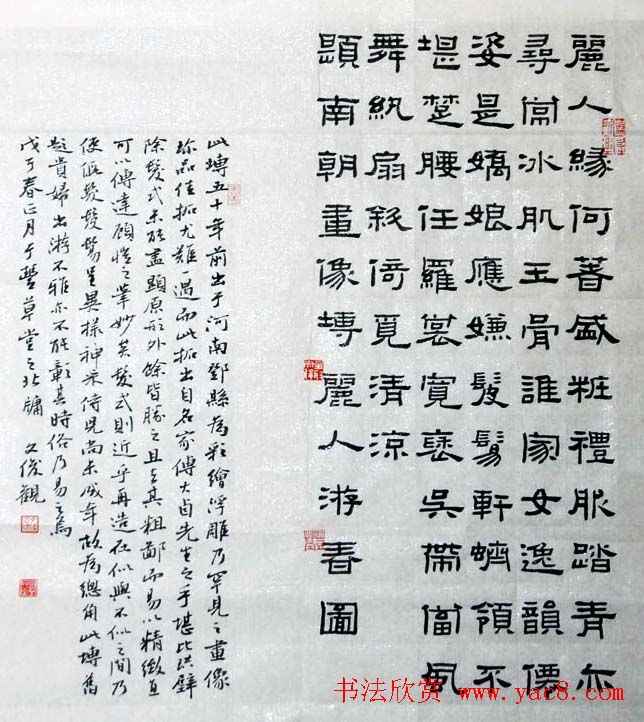 麗人緣何著盛粧禮服踏青亦
尋常冰肌玉骨誰家女逸韻僊
姿是嬌娘應嫌髮髩軒蠐領不
堪楚腰任羅裳寬褒吳帶當風
舞紈扇斜倚覓清涼
題南朝畫像塼麗人游春圖
此塼五十年前出于河南鄧縣為彩繪浮雕乃罕見之畫像
珎品佳拓尤難一遇而此拓出自名家傅大卣先生之手堪比拱璧
除髮式未能盡顯原形外餘皆勝之且去其粗鄙而易以精緻直
可以傳達顧愷之筆妙矣髮式則近乎再造在似與不似之間乃
使偃髮髩呈異樣神采侍兒尚未成年故為總角此塼舊
題貴婦出游不雅亦不能彰其時俗乃易之焉
戊子春正月于豐草堂之北牖 文俊觀
书法欣赏 www.yac8.com